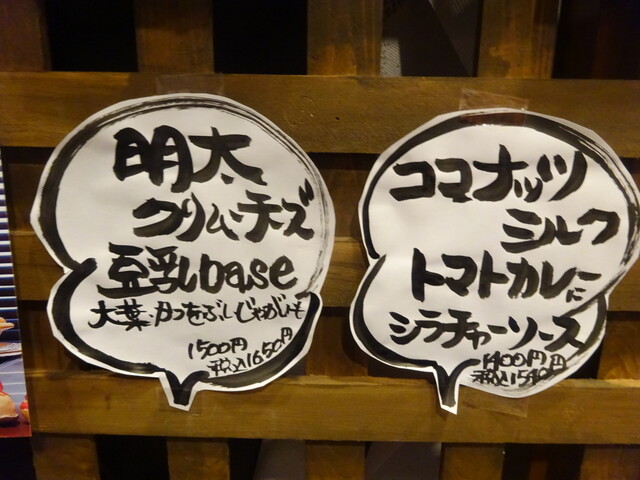 明太
クリームチーズ
豆乳base
大葉・かつをぶし・じゃがいも
1500円
税込1650円
ココナッツ
ミルク
トマトカレーに
シラチャーソース
1400円
税込1540円